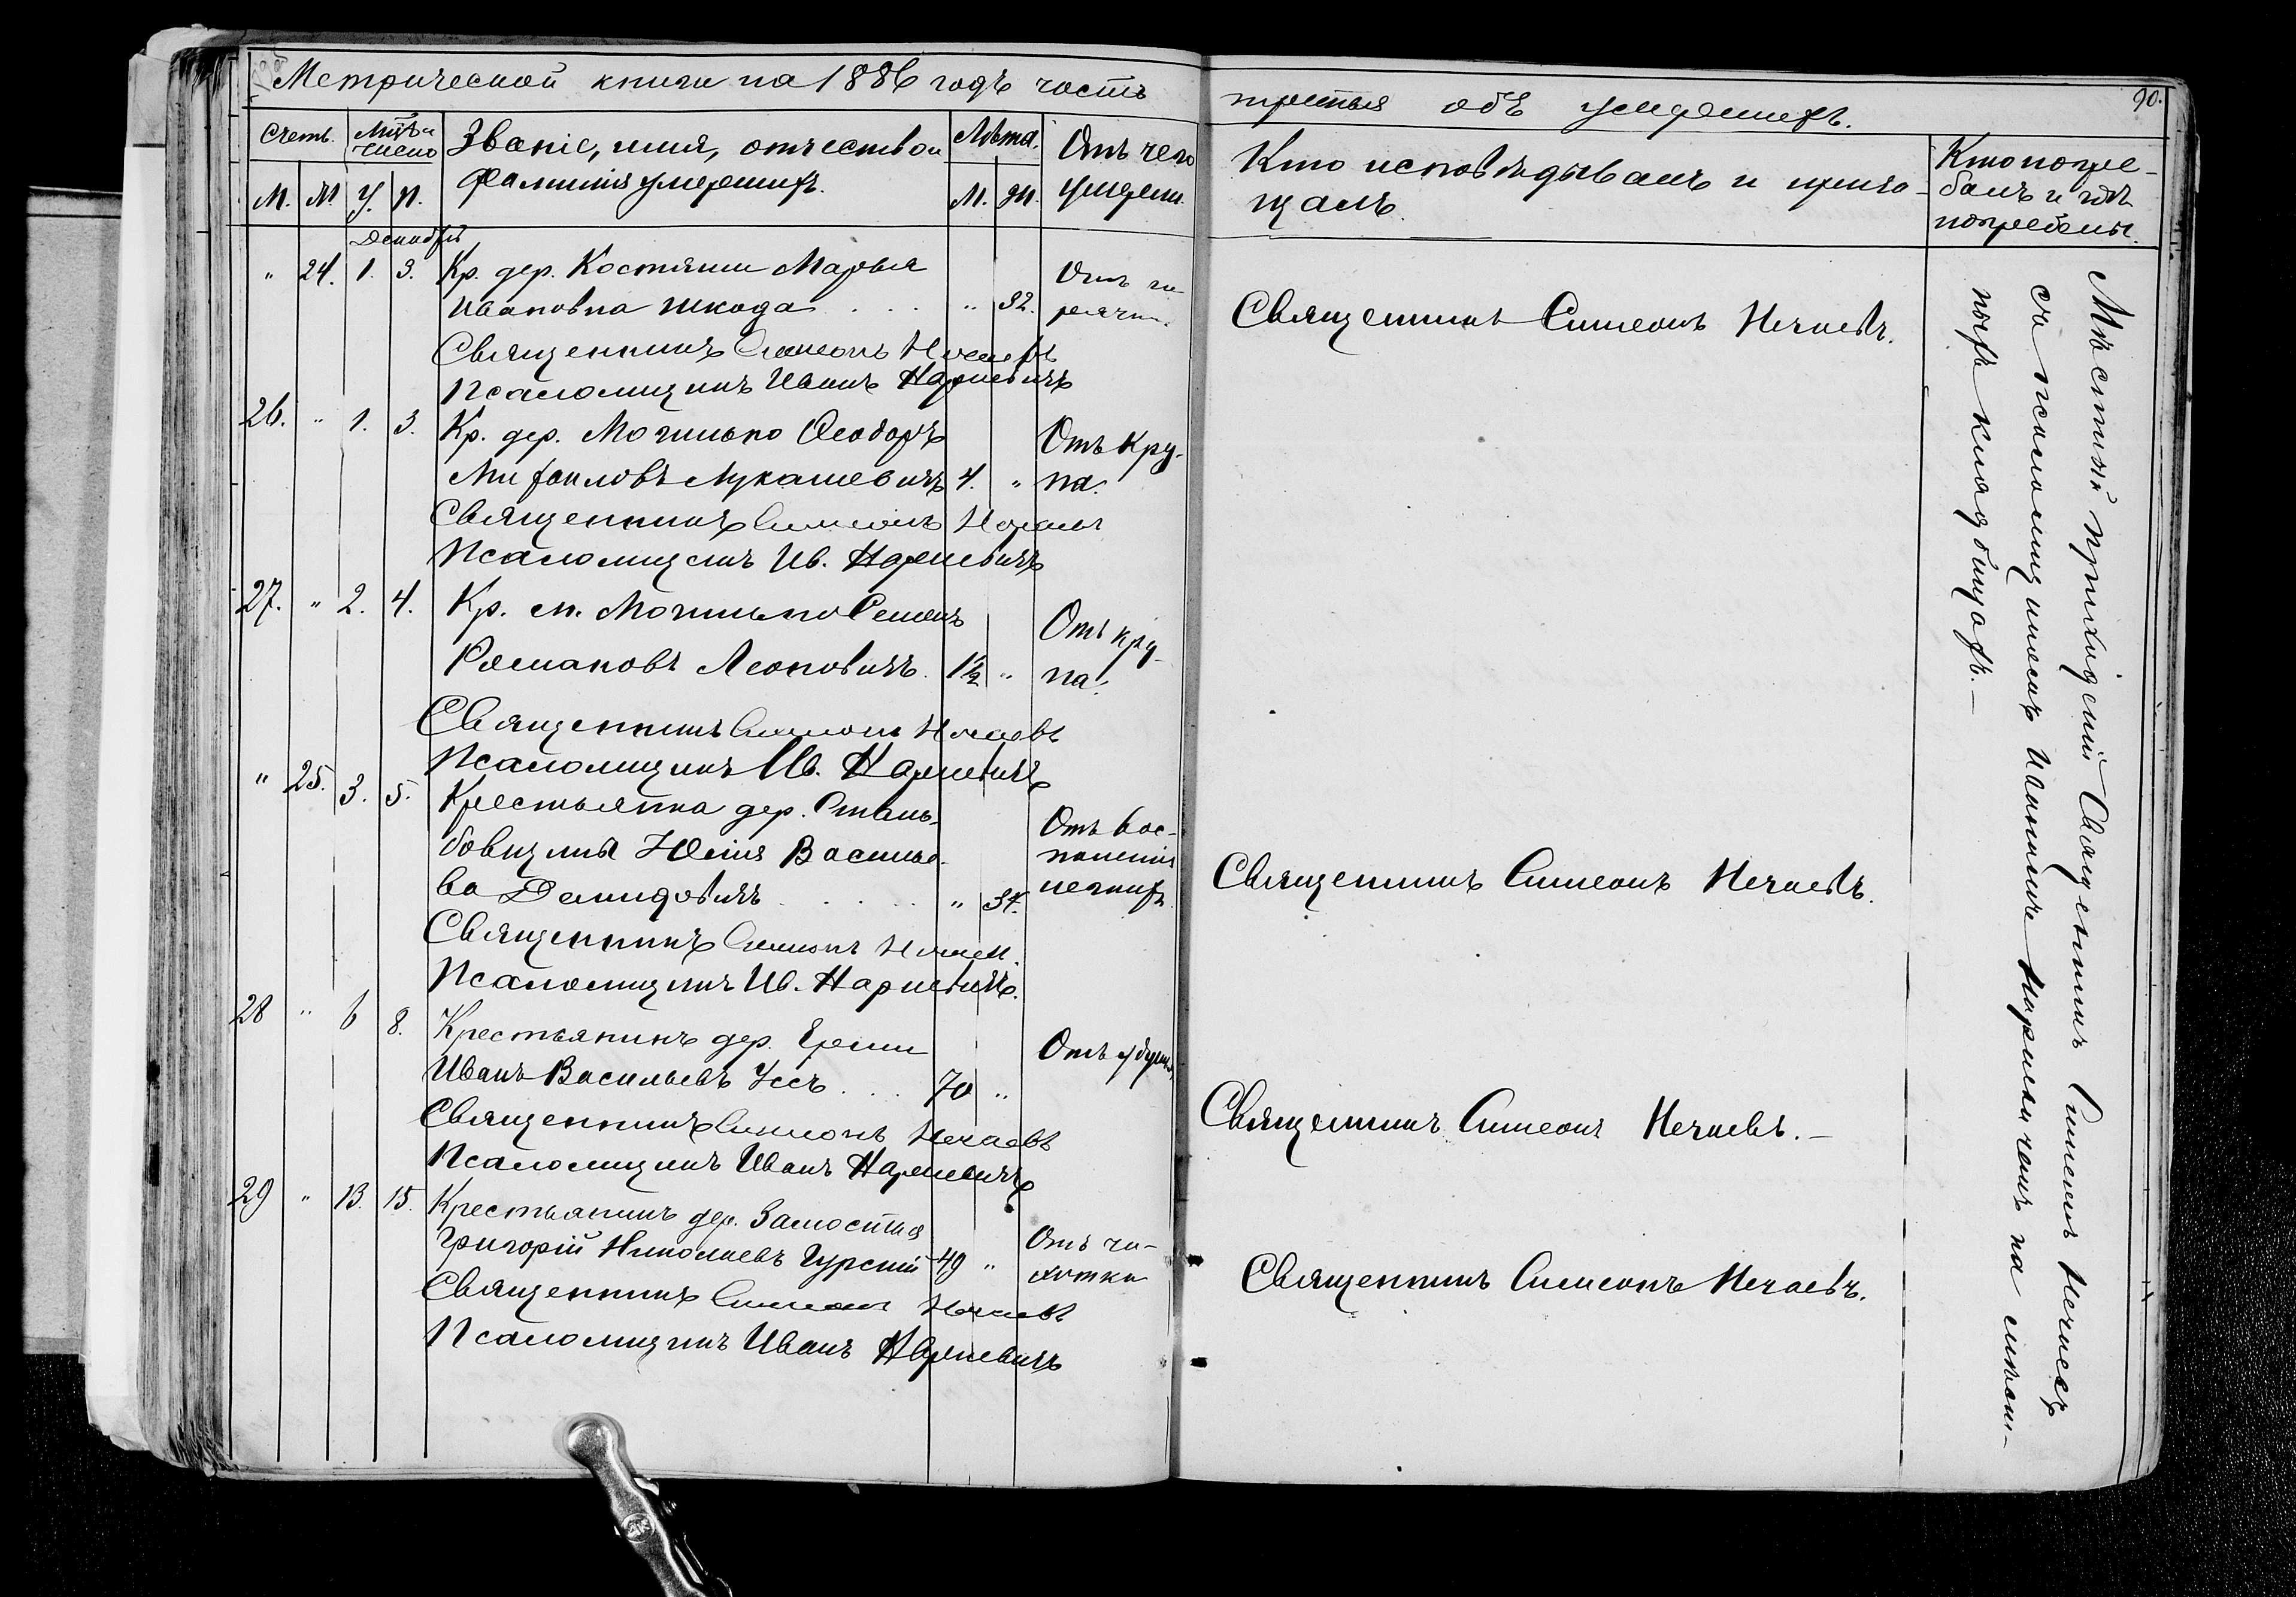 Метрической книги на 1886 годъ часть
третья объ умершихъ.
90.
Счетъ.
Мцъ и число
Званіе, имя, отчество и
фамилія умершихъ.
Лѣта.
Отъ чего
умерли.
М. Ж. У. П.
М. Ж.
Кто исповѣдывалъ и пріоб-
щалъ.
Кто погре-
балъ и гдѣ
погребены.
Декабрь
" 24. 1. 3. Кр. дер. Костяши Марья
Ивановна Шкода . . . " 32.
Отъ го-
рячки.
Священникъ Симеонъ Нечаевъ.
Священникъ Симеонъ Нечаевъ
Псаломщикъ Иванъ Наркевичъ
26. " 1. 3. Кр. дер. Могильно Ѳеодоръ
Михаиловъ Лукашевичъ 4. "
Отъ кру-
па.
Священникъ Симеонъ Нечаевъ
Псаломщикъ Ив. Наркевичъ
27. " 2. 4. Кр. м. Могильно Семенъ
Романовъ Леоновичъ. 1½ "
Отъ кру-
па.
Священникъ Симеонъ Нечаевъ
Псаломщикъ Ив. Наркевичъ
" 25. 3. 5. Крестьянка дер.
Юлія Василье-
ва Демидовичъ . . . . " 34.
Отъ вос-
паленія
Священникъ Симеонъ Нечаевъ.
Священникъ Симеонъ Нечаев.
Псаломщикъ Ив. Наркевичъ.
28 " 6 8. Крестьянинъ дер. Ереми
Иванъ Васильевъ Уссъ . . . 70 "
Отъ удушья
Священникъ Симеонъ Нечаевъ. –
Священникъ Симеонъ Нечаевъ
Псаломщикъ Иванъ Наркевичъ
29 " 13. 15. Крестьянинъ дер. Замостья
Григорій Николаевъ Гурскій 49 "
Отъ ча-
хотки
Священникъ Симеонъ Нечаевъ.
Священникъ Симеонъ Нечаевъ
Псаломщикъ Иванъ Наркевичъ
Мѣстный приходскій Священникъ Симеонъ Нечаевъ
съ псаломщикомъ Иваномъ Наркевичемъ на мѣстн-
ыхъ кладбищахъ. –